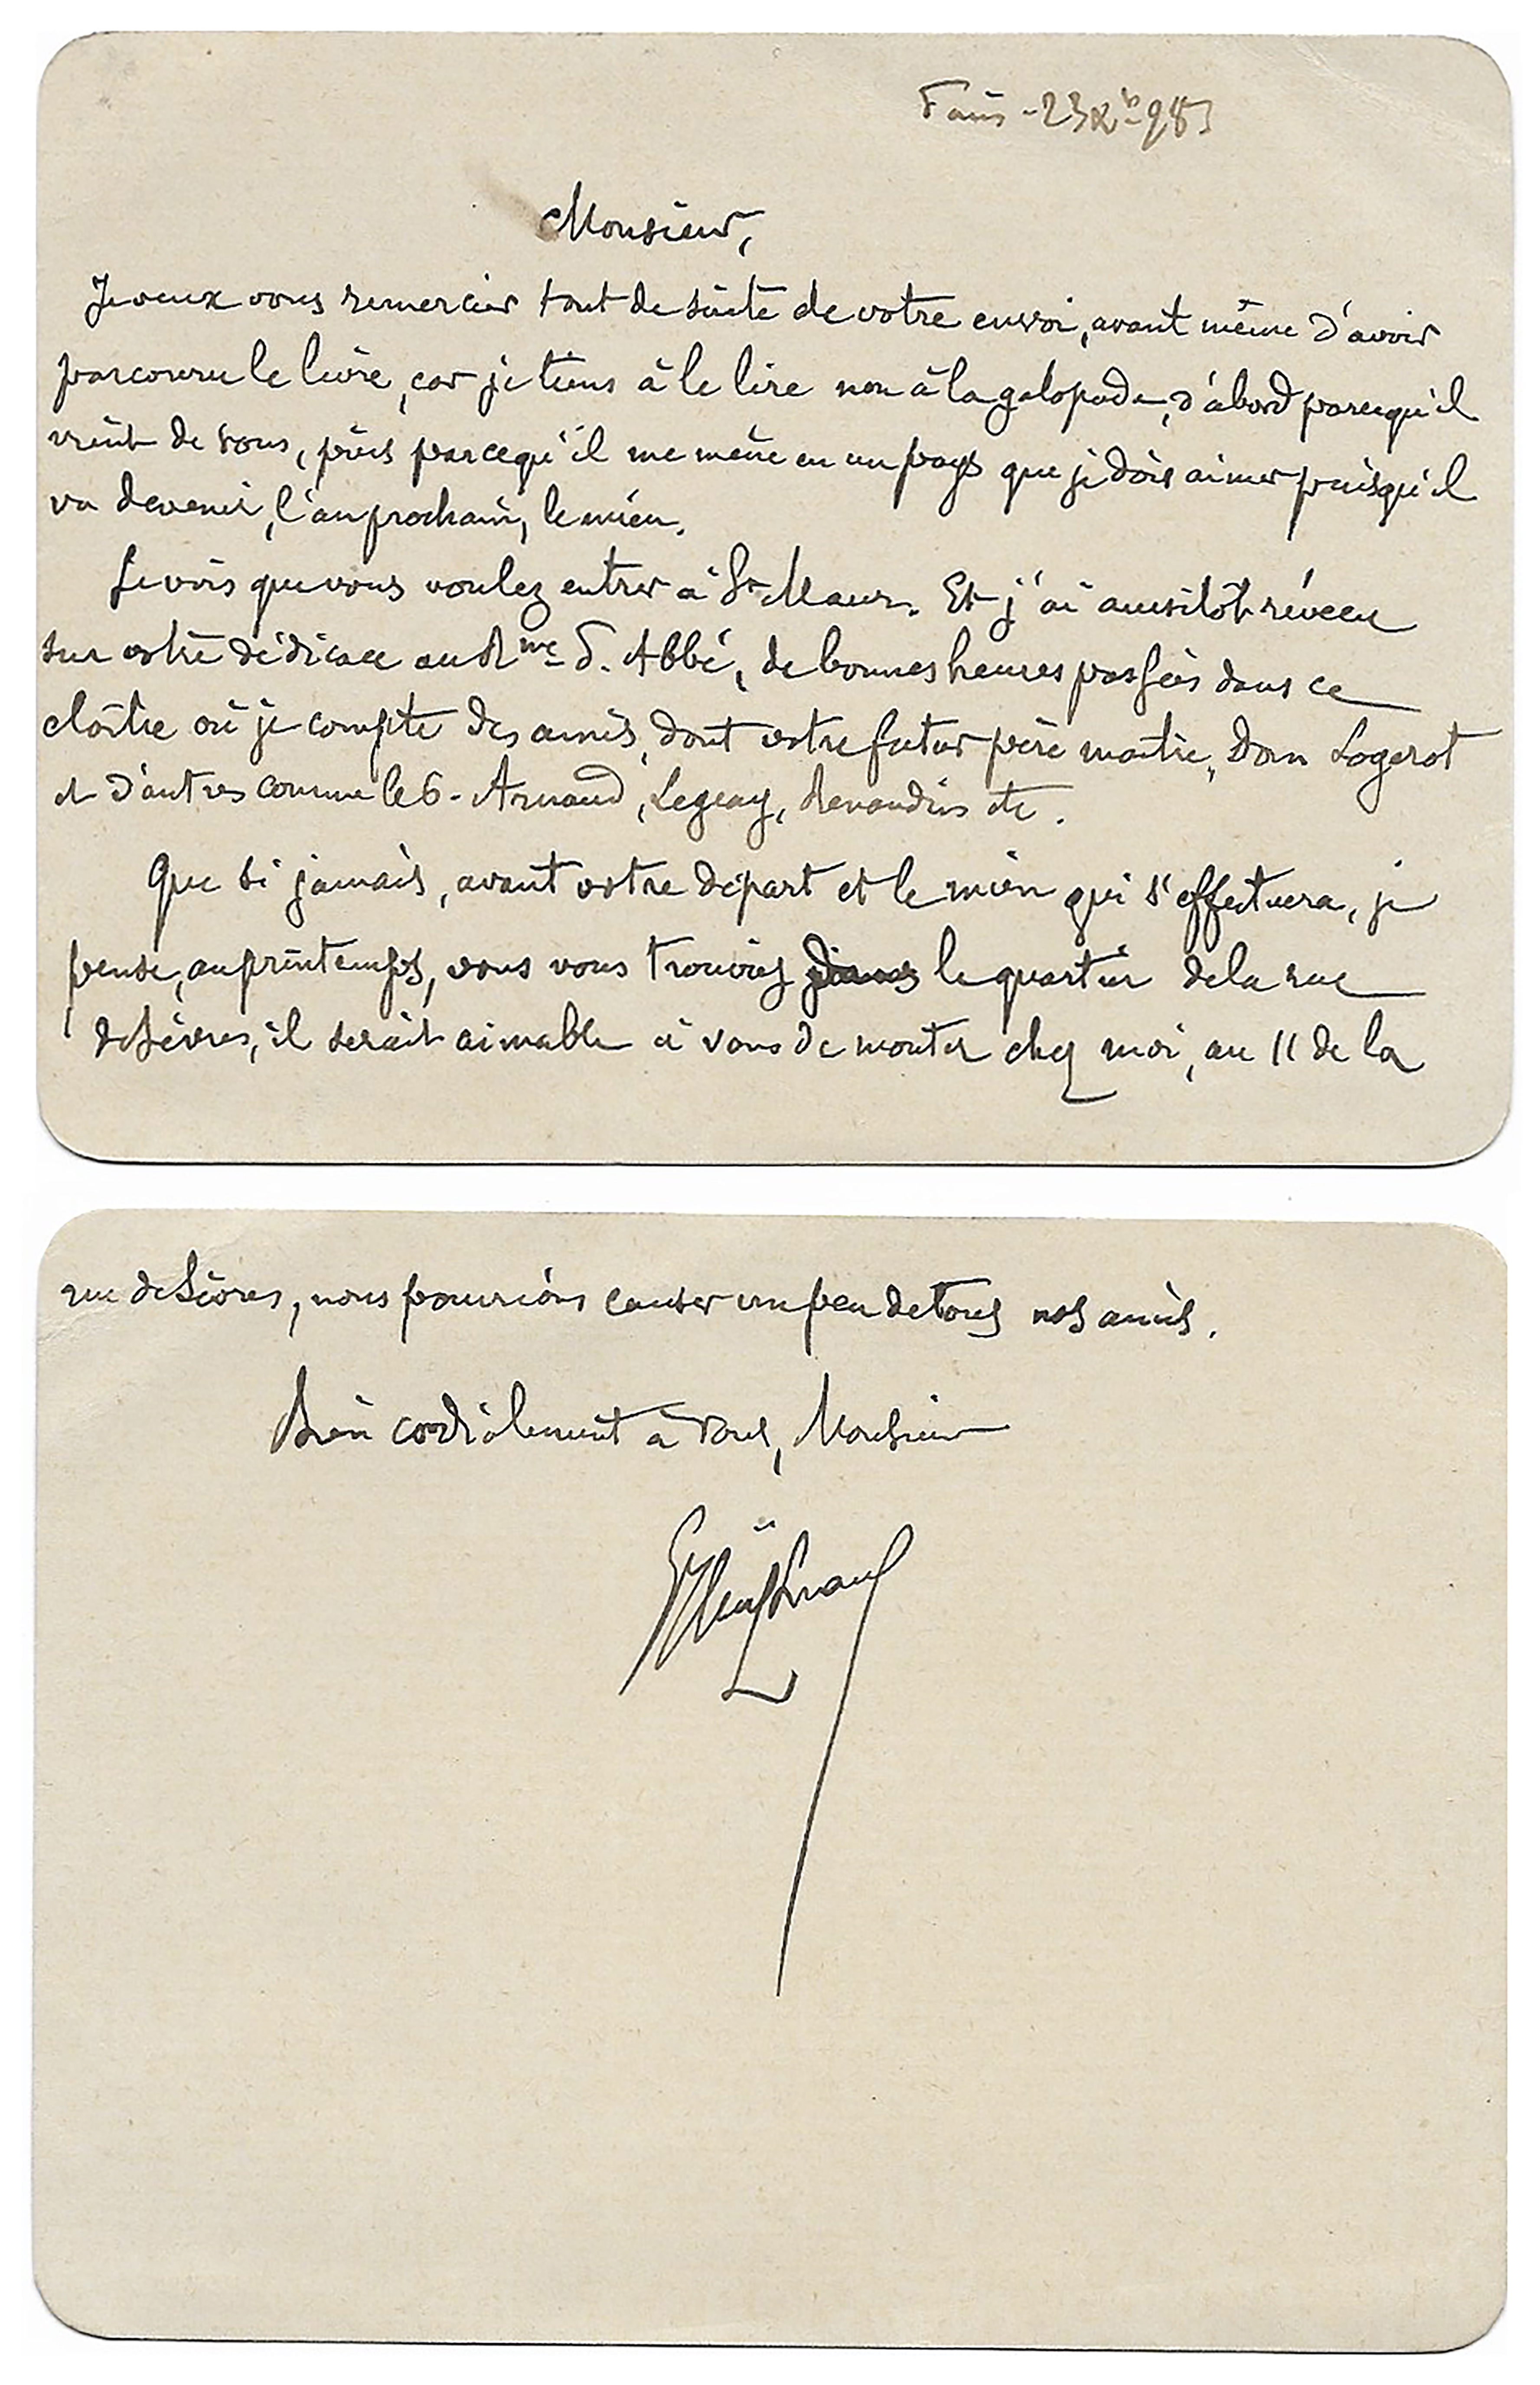 Paris - 23 Xb 98
Monsieur,
Je veux vous remercier tout de suite de votre envoi, avant même d'avoir
parcouru le livre, car je tiens à le lire non à la galopade, d'abord parcequ'il
vient de vous, puis parcequ'il me mène en un pays que je dois aimer puisqu'il
va devenir, l'an prochain, le mien.
Je vois que vous voulez entrer à St Maur. Et j'ai aussitôt révécu
sur votre dédicace au Rme P. Abbé, de bonnes heures passées dans ce
cloître où je compte des amis, dont votre futur père maître, Dom Logerot
et d'autres comme les Arnaud, Legeay, etc.
Que si jamais, avant votre départ et le mien qui s'effectuera, je
pense, au printemps, vous vous trouviez dans le quartier de la rue
de Sèvres, il serait aimable à vous de monter chez moi, au 11 de la
rue de Sèvres, nous pourrions causer un peu de tous nos amis.
Bien cordialement à vous, Monsieur
GHuysmans